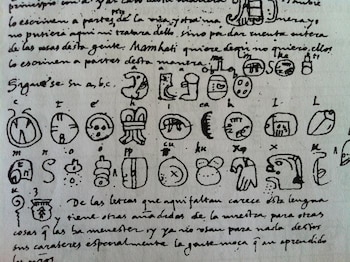 lo escriven a partes de la una y otra manera, yo
no pusiera aqui ni tratara dello sino por dar cuenta entera
de las cosas desta gente. Mainkati quiere dezir no quiero, ellos
lo escriven a partes desta manera
Siguese su a, b, c.
c t e h i ca k l L
m n o o pp cu ku x x
u z
De las letras que aqui faltan carece esta lengua
y tiene otras añadidas de la nuestra para otras
cosas q̃ las ha menester, y ya no usan para nada destos
sus carateres especialmente la gente moça q̃ an aprendido